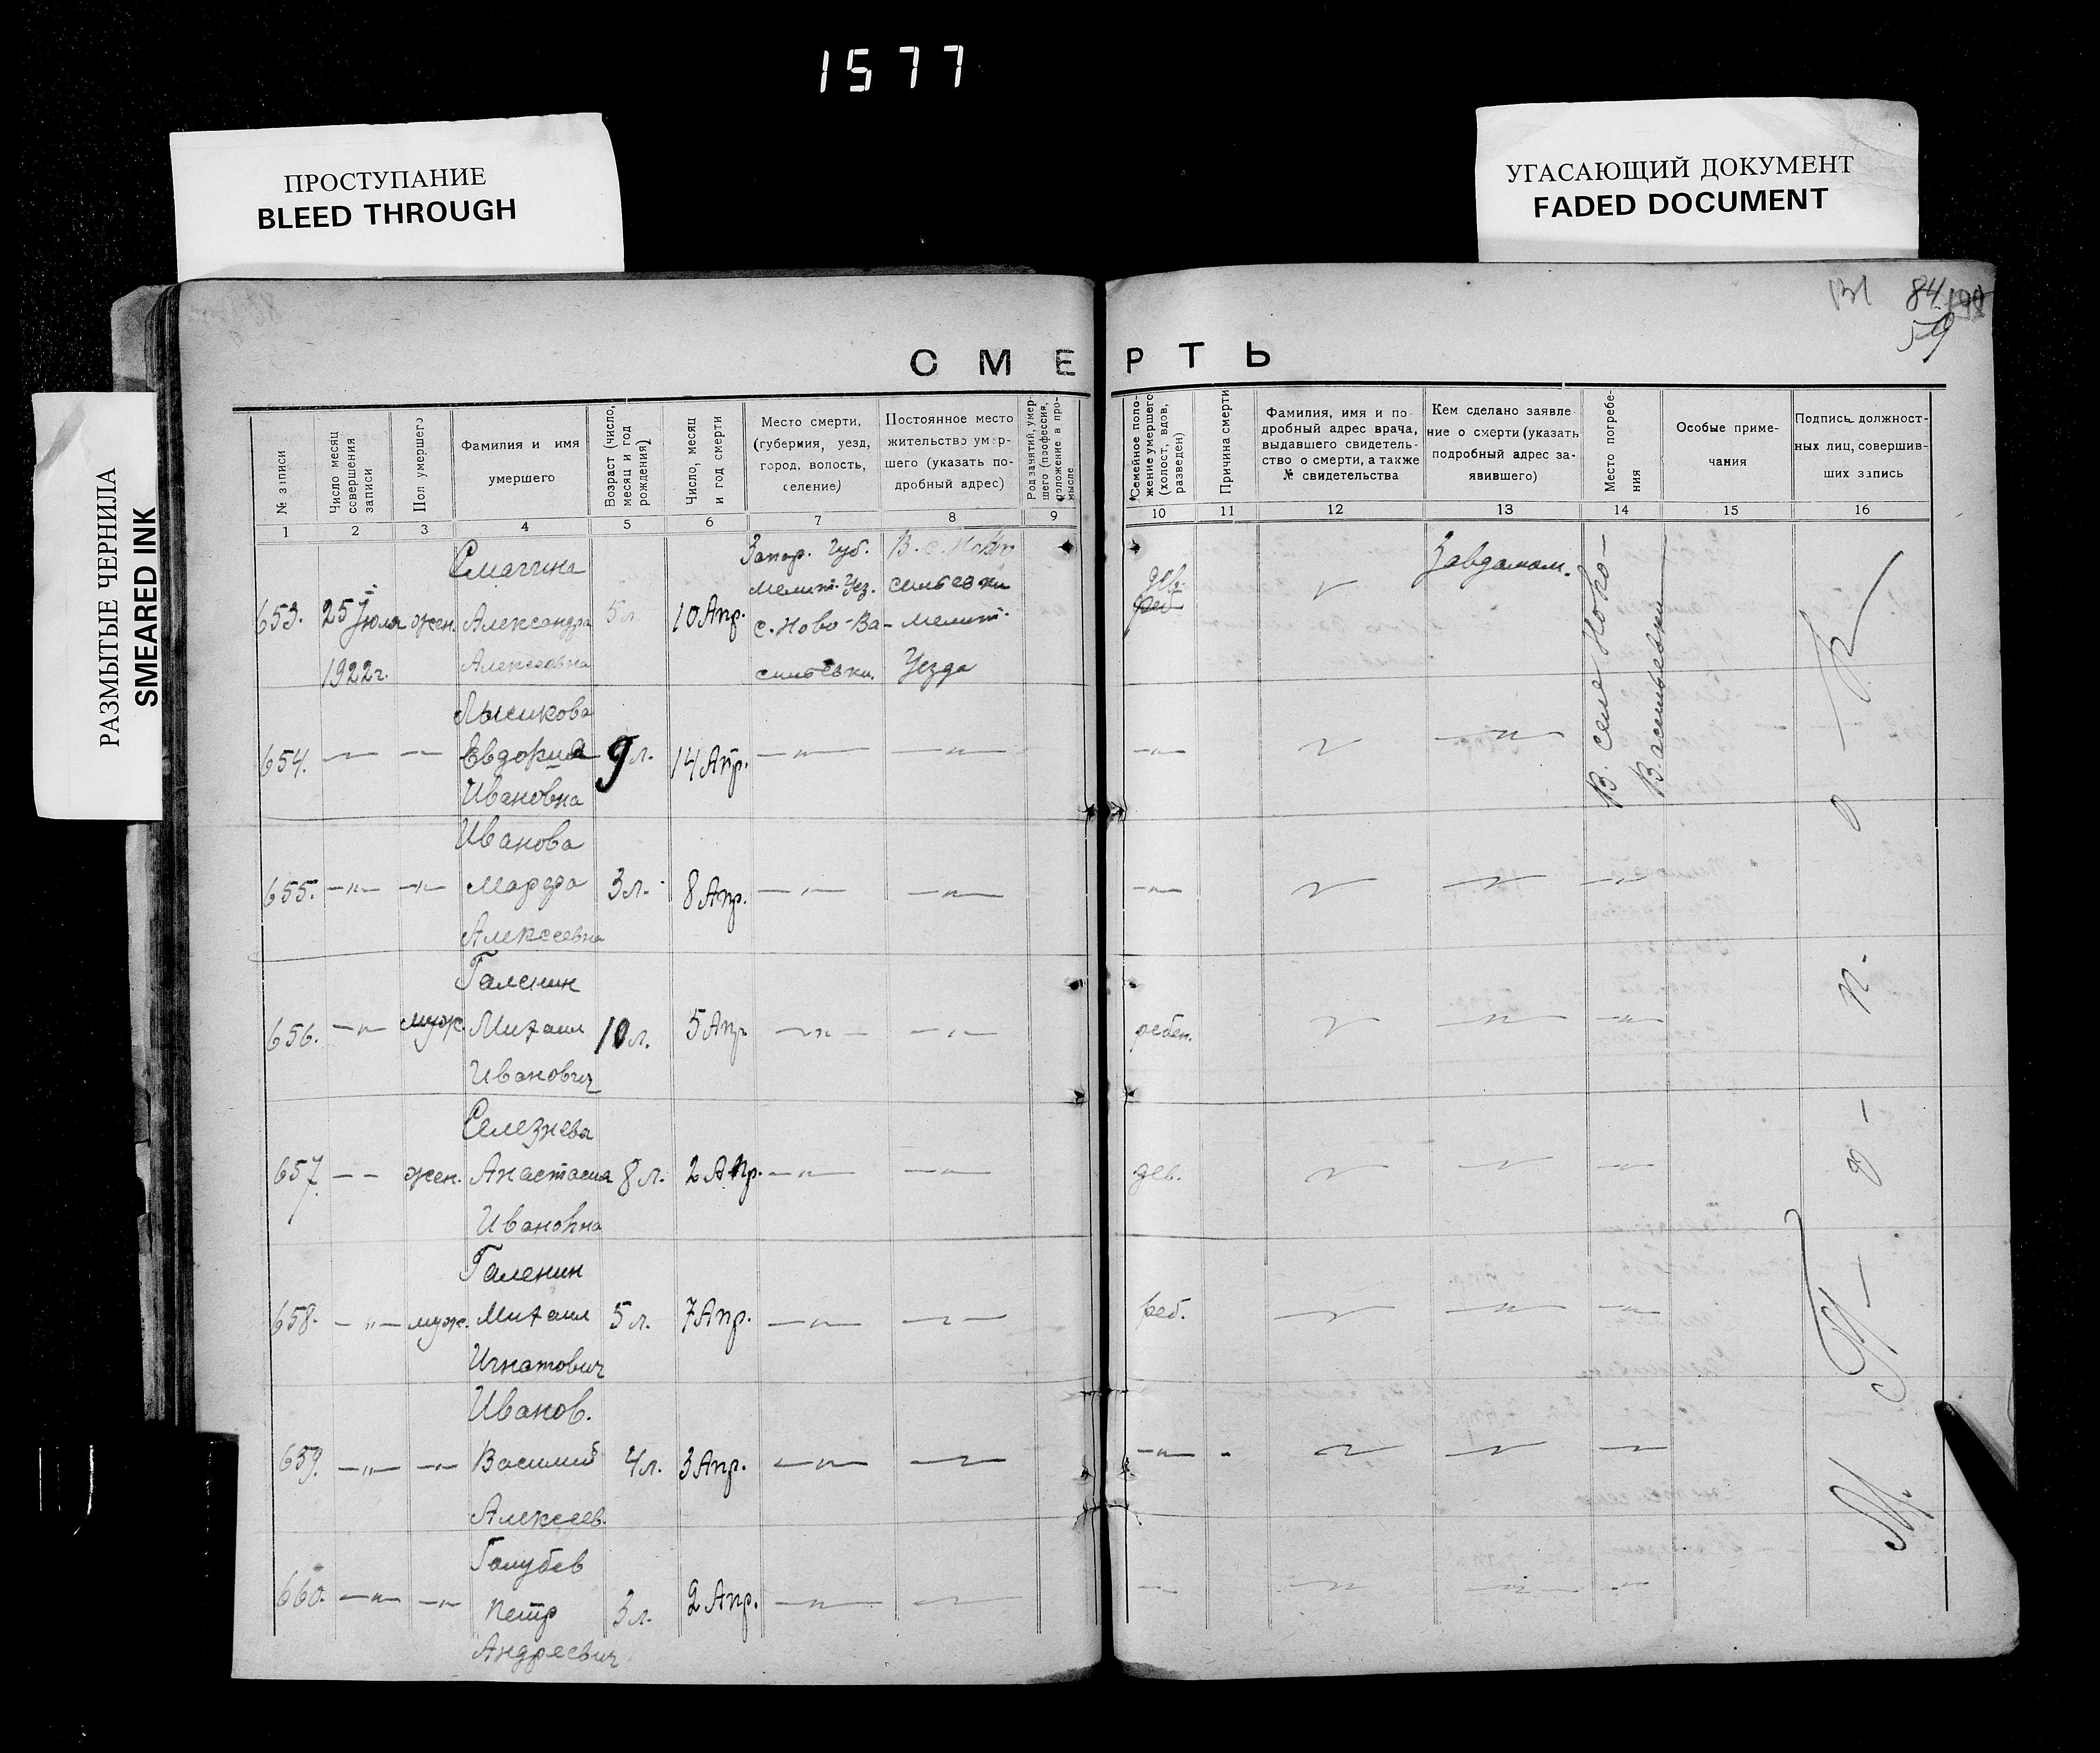 1577
ПРОСТУПАНИЕ
BLEED THROUGH
УГАСАЮЩИЙ ДОКУМЕНТ
FADED DOCUMENT
РАЗМЫТЫЕ ЧЕРНИЛА
SMEARED INK
84
59
СМЕРТЬ
№ записи
Число месяц совершения записи
Пол умершего
Фамилия и имя умершего
Возраст (число, месяц и год рождения)
Число, месяц и год смерти
Место смерти, (губерния, уезд, город, волость, селение)
Постоянное место жительство умершего (указать подробный адрес)
Род занятий, умершего (профессия, положение в промысле
Семейное положение умершего (холост, вдов, разведен)
Причина смерти
Фамилия, имя и подробный адрес врача, выдавшего свидетельство о смерти, а также № свидетельства
Кем сделано заявление о смерти (указать подробный адрес заявившего)
Место погребения
Особые примечания
Подпись должностных лиц, совершивших запись
1 2 3 4 5 6 7 8 9 10 11 12 13 14 15 16
Смагина Запор. Губ.
Мелит. Уез. сильевки
653. 25 Июля жен. Александра 5 л. 10 Апр. с. Ново-Ва- Мелит.
1922г. Алексеевна сильевки. Уезда
дев.
В селе Ново-
Васильевки
Лысикова
654. — — Евдокия 9 л. 14 Апр. —"— —"—
Ивановна
Иванова
655. —"— —"— Марфа 3 л. 8 Апр. —"— —"—
Алексеевна
Галенин
656. —"— муж. Михаил 10 л. 5 Апр —"— —"— ребен.
Иванович
Селезнева
657. — — жен. Анастасия 8 л. 2 Апр. —"— —"— дев.
Ивановна
Галенин
658. —"— муж. Михаил 5 л. 7 Апр. —"— —"— реб.
Игнатович
Иванов.
659. —"— —"— Василий 4 л. 3 Апр. —"— —"—
Алексеев.
Голубев
660. —"— —"— Петр 3 л. 2 Апр. —"— —"—
Андреевич